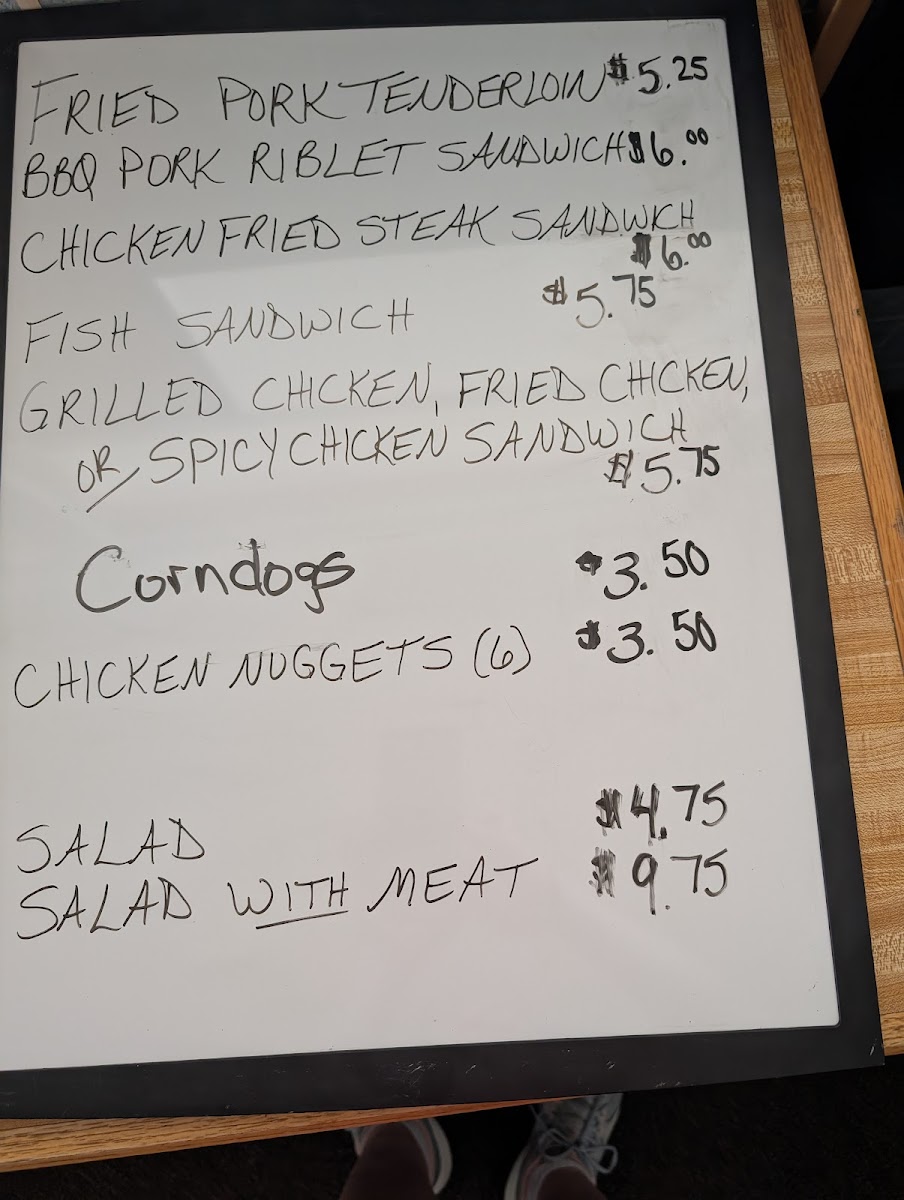 FRIED PORK TENDERLOIN $5.25
BBQ PORK RIBLET SANDWICH $6.00
CHICKEN FRIED STEAK SANDWICH
$6.00
FISH SANDWICH $5.75
GRILLED CHICKEN, FRIED CHICKEN,
OR SPICY CHICKEN SANDWICH
$5.75
Corndogs $3.50
CHICKEN NUGGETS (6) $3.50
SALAD $4.75
SALAD WITH MEAT $9.75